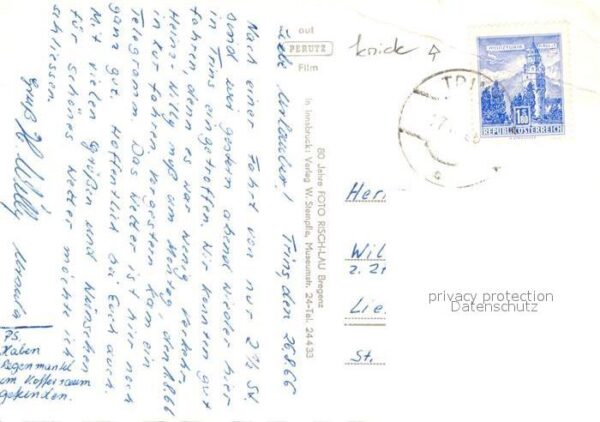 Trins, den 26.8.66
Liebe Unkauler!
Nach einer Fahrt von nur 2½ St
sind wir gestern abend wieder hier
in Trins eingetroffen. Wir konnten gut
fahren, denn es war wenig Verkehr.
Heinz Willy muß am Montag, den 1.8.66
in Kur fahren, vorgestern kam ein
Telegramm. Das Wetter ist hier noch
ganz gut. Hoffentlich bei Euch auch.
Mit vielen Grüßen und Wünschen
für schönes Wetter möchte ich
schliessen.
Gruß H. Willy Ursula
PS.
Haben
Regenmantel
im Kofferraum
gefunden.
auf
PERUTZ
Film
knick
80 Jahre FOTO RISCH-LAU Bregenz
In Innsbruck: Verlag W. Stempfle, Museumstr. 24-Tel. 24 4 33
1.80
REPUBLIK ÖSTERREICH
TRI
Herr
Wil
z. Zt
Lie
St.
privacy protection
Datenschutz